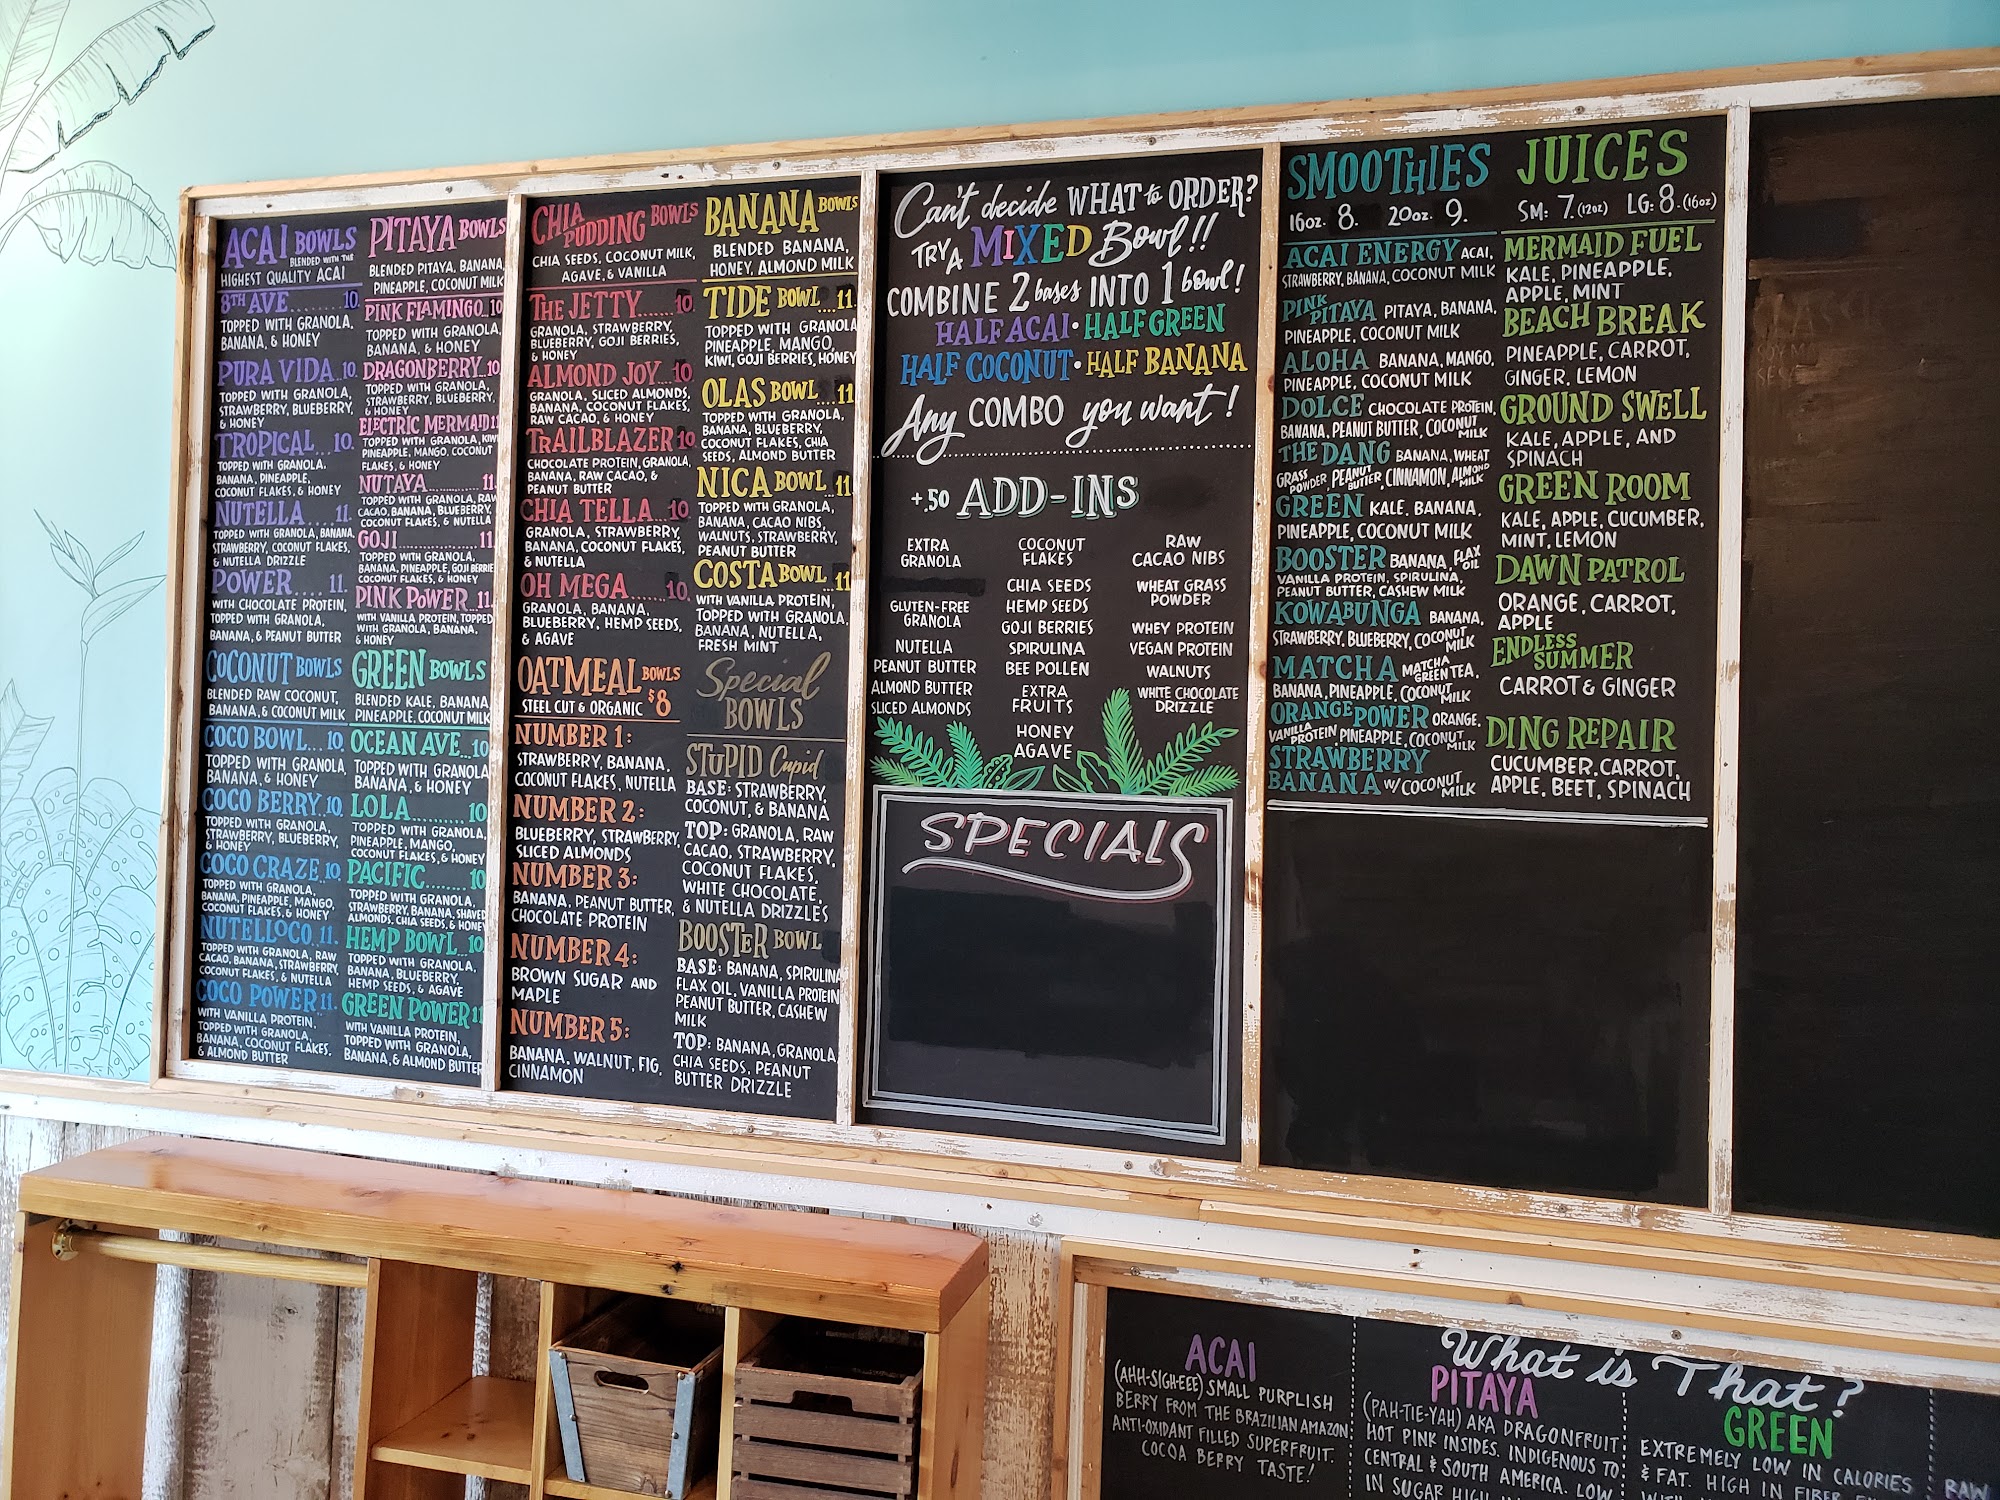 ACAI BOWLS
BLENDED WITH THE
HIGHEST QUALITY ACAI
8TH AVE......10.
TOPPED WITH GRANOLA,
BANANA, & HONEY
PURA VIDA..10.
TOPPED WITH GRANOLA,
STRAWBERRY, BLUEBERRY,
& HONEY
TROPICAL..10.
TOPPED WITH GRANOLA,
BANANA, PINEAPPLE,
COCONUT FLAKES, & HONEY
NUTELLA....11.
TOPPED WITH GRANOLA, BANANA,
STRAWBERRY, COCONUT FLAKES,
& NUTELLA DRIZZLE
POWER....11.
WITH CHOCOLATE PROTEIN,
TOPPED WITH GRANOLA,
BANANA, & PEANUT BUTTER
COCONUT BOWLS
BLENDED RAW COCONUT,
BANANA, & COCONUT MILK
COCO BOWL...10.
TOPPED WITH GRANOLA,
BANANA, & HONEY
COCO BERRY.10.
TOPPED WITH GRANOLA,
STRAWBERRY, BLUEBERRY,
& HONEY
COCO CRAZE.10.
TOPPED WITH GRANOLA,
BANANA, PINEAPPLE, MANGO,
COCONUT FLAKES, & HONEY
NUTELLOCO..11.
TOPPED WITH GRANOLA, RAW
CACAO, BANANA, STRAWBERRY,
COCONUT FLAKES, & NUTELLA
COCO POWER 11.
WITH VANILLA PROTEIN,
TOPPED WITH GRANOLA,
BANANA, COCONUT FLAKES,
& ALMOND BUTTER
PITAYA BOWLS
BLENDED PITAYA, BANANA,
PINEAPPLE, COCONUT MILK
PINK FLAMINGO..10
TOPPED WITH GRANOLA,
BANANA, & HONEY
DRAGONBERRY..10.
TOPPED WITH GRANOLA,
STRAWBERRY, BLUEBERRY,
& HONEY
ELECTRIC MERMAID 11
TOPPED WITH GRANOLA, KIWI
PINEAPPLE, MANGO, COCONUT
FLAKES, & HONEY
NUTAYA..........11.
TOPPED WITH GRANOLA, RAW
CACAO, BANANA, BLUEBERRY,
COCONUT FLAKES, & NUTELLA
GOJI..............11.
TOPPED WITH GRANOLA,
BANANA, PINEAPPLE, GOJI BERRIES
COCONUT FLAKES, & HONEY
PINK POWER..11.
WITH VANILLA PROTEIN, TOPPED
WITH GRANOLA, BANANA,
& HONEY
GREEN BOWLS
BLENDED KALE, BANANA,
PINEAPPLE, COCONUT MILK
OCEAN AVE..10
TOPPED WITH GRANOLA
BANANA, & HONEY
LOLA..........10
TOPPED WITH GRANOLA,
PINEAPPLE, MANGO,
COCONUT FLAKES, & HONEY
PACIFIC........10
TOPPED WITH GRANOLA,
STRAWBERRY, BANANA, SHAVED
ALMONDS, CHIA SEEDS, & HONEY
HEMP BOWL...10
TOPPED WITH GRANOLA,
BANANA, BLUEBERRY,
HEMP SEEDS, & AGAVE
GREEN POWER 11
WITH VANILLA PROTEIN,
TOPPED WITH GRANOLA,
BANANA, & ALMOND BUTTER
CHIA PUDDING BOWLS
CHIA SEEDS, COCONUT MILK,
AGAVE, & VANILLA
THE JETTY.......10.
GRANOLA, STRAWBERRY,
BLUEBERRY, GOJI BERRIES,
& HONEY
ALMOND JOY...10
GRANOLA, SLICED ALMONDS,
BANANA, COCONUT FLAKES,
RAW CACAO, & HONEY
TRAILBLAZER 10.
CHOCOLATE PROTEIN, GRANOLA,
BANANA, RAW CACAO, &
PEANUT BUTTER
CHIA TELLA...10
GRANOLA, STRAWBERRY,
BANANA, COCONUT FLAKES,
& NUTELLA
OH MEGA.......10.
GRANOLA, BANANA,
BLUEBERRY, HEMP SEEDS,
& AGAVE
OATMEAL BOWLS
STEEL CUT & ORGANIC $8
NUMBER 1:
STRAWBERRY, BANANA,
COCONUT FLAKES, NUTELLA
NUMBER 2:
BLUEBERRY, STRAWBERRY,
SLICED ALMONDS
NUMBER 3:
BANANA, PEANUT BUTTER,
CHOCOLATE PROTEIN
NUMBER 4:
BROWN SUGAR AND
MAPLE
NUMBER 5:
BANANA, WALNUT, FIG,
CINNAMON
BANANA BOWLS
BLENDED BANANA,
HONEY, ALMOND MILK
TIDE BOWL....11.
TOPPED WITH GRANOLA
PINEAPPLE, MANGO,
KIWI, GOJI BERRIES, HONEY
OLAS BOWL....11
TOPPED WITH GRANOLA,
BANANA, BLUEBERRY,
COCONUT FLAKES, CHIA
SEEDS, ALMOND BUTTER
NICA BOWL...11.
TOPPED WITH GRANOLA,
BANANA, CACAO NIBS,
WALNUTS, STRAWBERRY,
PEANUT BUTTER
COSTA BOWL...11
WITH VANILLA PROTEIN,
TOPPED WITH GRANOLA,
BANANA, NUTELLA,
FRESH MINT
Special
BOWLS
STUPID Cupid
BASE: STRAWBERRY,
COCONUT, & BANANA
TOP: GRANOLA, RAW
CACAO, STRAWBERRY,
COCONUT FLAKES,
WHITE CHOCOLATE,
& NUTELLA DRIZZLES
BOOSTER BOWL
BASE: BANANA, SPIRULINA
FLAX OIL, VANILLA PROTEIN
PEANUT BUTTER, CASHEW
MILK
TOP: BANANA, GRANOLA,
CHIA SEEDS, PEANUT
BUTTER DRIZZLE
Can't decide WHAT to ORDER?
TRY A MIXED Bowl!!
COMBINE 2 bases INTO 1 bowl!
HALF ACAI • HALF GREEN
HALF COCONUT • HALF BANANA
Any COMBO you want!
+.50 ADD-INS
EXTRA
GRANOLA
GLUTEN-FREE
GRANOLA
NUTELLA
PEANUT BUTTER
ALMOND BUTTER
SLICED ALMONDS
COCONUT
FLAKES
CHIA SEEDS
HEMP SEEDS
GOJI BERRIES
SPIRULINA
BEE POLLEN
EXTRA
FRUITS
HONEY
AGAVE
RAW
CACAO NIBS
WHEAT GRASS
POWDER
WHEY PROTEIN
VEGAN PROTEIN
WALNUTS
WHITE CHOCOLATE
DRIZZLE
SPECIALS
SMOOTHIES
16oz. 8. 20oz. 9.
ACAI ENERGY ACAI,
STRAWBERRY, BANANA, COCONUT MILK
PINK PITAYA PITAYA, BANANA,
PINEAPPLE, COCONUT MILK
ALOHA BANANA, MANGO,
PINEAPPLE, COCONUT MILK
DOLCE CHOCOLATE PROTEIN,
BANANA, PEANUT BUTTER, COCONUT MILK
THE DANG BANANA, WHEAT
GRASS POWDER, PEANUT BUTTER, CINNAMON, ALMOND MILK
GREEN KALE, BANANA,
PINEAPPLE, COCONUT MILK
BOOSTER BANANA, FLAX OIL
VANILLA PROTEIN, SPIRULINA,
PEANUT BUTTER, CASHEW MILK
KOWABUNGA BANANA,
STRAWBERRY, BLUEBERRY, COCONUT MILK
MATCHA MATCHA GREEN TEA,
BANANA, PINEAPPLE, COCONUT MILK
ORANGE POWER ORANGE,
VANILLA PROTEIN, PINEAPPLE, COCONUT MILK
STRAWBERRY
BANANA W/ COCONUT MILK
JUICES
SM: 7. (12oz) LG: 8. (16oz)
MERMAID FUEL
KALE, PINEAPPLE,
APPLE, MINT
BEACH BREAK
PINEAPPLE, CARROT,
GINGER, LEMON
GROUND SWELL
KALE, APPLE, AND
SPINACH
GREEN ROOM
KALE, APPLE, CUCUMBER,
MINT, LEMON
DAWN PATROL
ORANGE, CARROT,
APPLE
ENDLESS
SUMMER
CARROT & GINGER
DING REPAIR
CUCUMBER, CARROT,
APPLE, BEET, SPINACH
What is That?
ACAI
(AHH-SIGH-EEE) SMALL PURPLISH
BERRY FROM THE BRAZILIAN AMAZON
ANTI-OXIDANT FILLED SUPERFRUIT.
COCOA BERRY TASTE!
PITAYA
(PAH-TIE-YAH) AKA DRAGONFRUIT
HOT PINK INSIDES. INDIGENOUS TO
CENTRAL & SOUTH AMERICA. LOW
IN SUGAR HIGH
GREEN
EXTREMELY LOW IN CALORIES
& FAT. HIGH IN FIBER
RAW